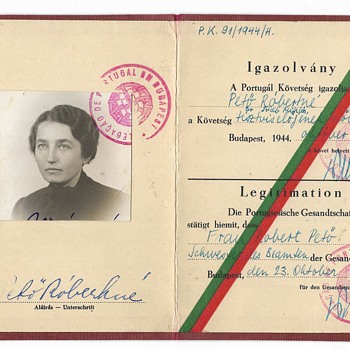 LEGAÇÃO DE PORTUGAL EM BUDAPEST
Pető Róbertné
Aláírás — Unterschrift
P.K. 91/1944/H.
Igazolvány
A Portugál Követség igazolja
Pető Robertné
a Követség tisztviselőjének
Budapest, 1944. október
A követ helyett
Legitimation
Die Portugiesische Gesandtschaft
stätigt hiemit, dass
Frau Robert Pető
Schwester des Beamten der Gesan
Budapest, den 23. Oktober
Für den Gesandten